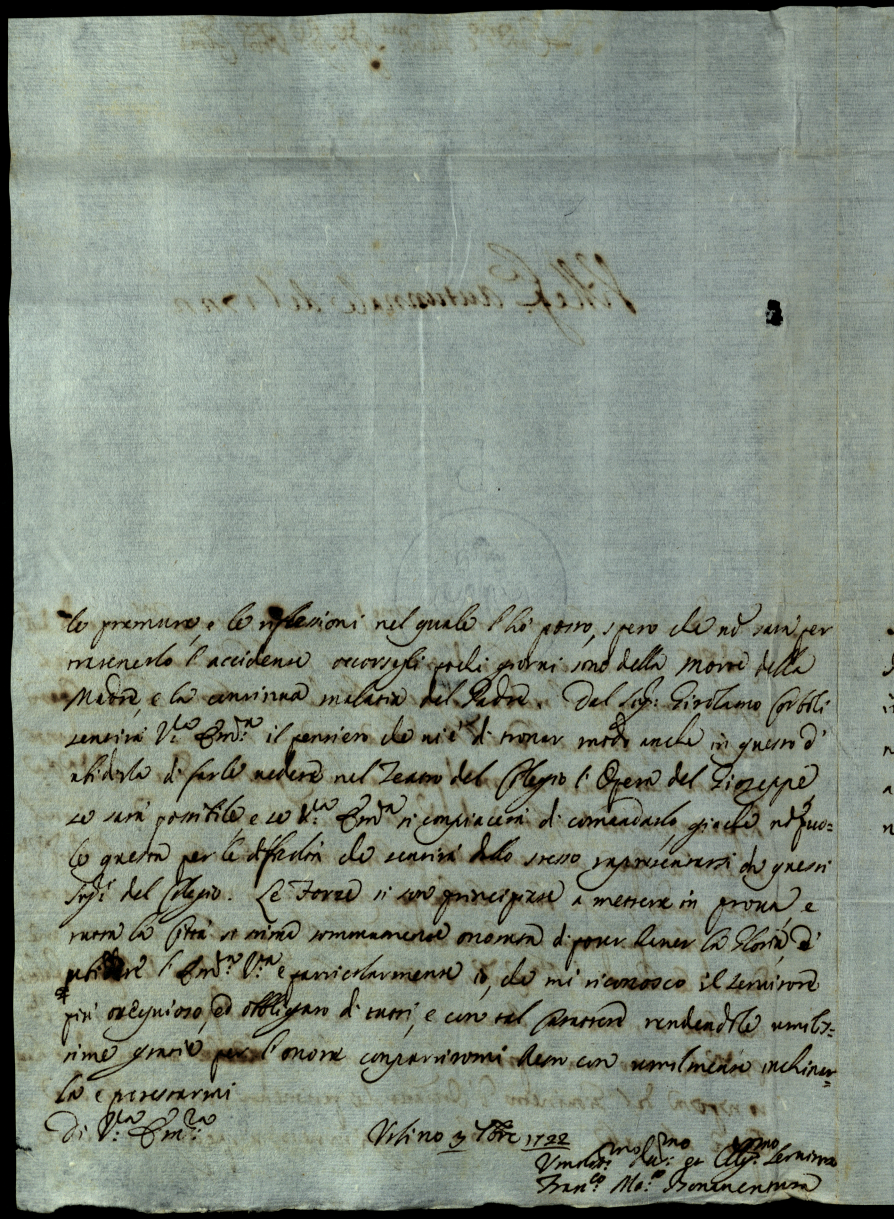 le premure, e le riflessioni nel quale l'hò posto, spero che nõ sara per
trattenerlo l'accidente occorsogli pochi giorni sono della morte della
Madre, e la continua malatia del Padre. Dal Sig.r Girolamo Corboli
sentirà V.ra Em.za il pensiero che ui è di trouar modo anche in questo d'
ubidirla di farle uedere nel Teatro del Collegio l'Opera del Gioseppe
se sarà possibile e se V.ra Em.za si compiacerà di comandarlo giache nõ puo=
le questa per le difficoltà che sentirà dallo stesso rappresentarsi da questi
Sig.ri del Collegio. Le Forze si son principiate a mettere in proua, e
tutta la Città si stima sommamente onorata di poter hauer la Gloria d'
ubidire l'Em.za V.ra e particolarmente io, che mi riconosco il seruitore
più ossequioso, ed obbligato di tutti, e con tal carattere rendendole umilis=
sime grazie per l'onore compartitomi resto con umilmente inchinar=
la e protestarmi
Di V.ra Em.za
Urbino 3 Xbre 1722
Umiliss.mo Deu.mo ed Obblig.mo Seruitore
Fran.co Ma.a Bonauentura